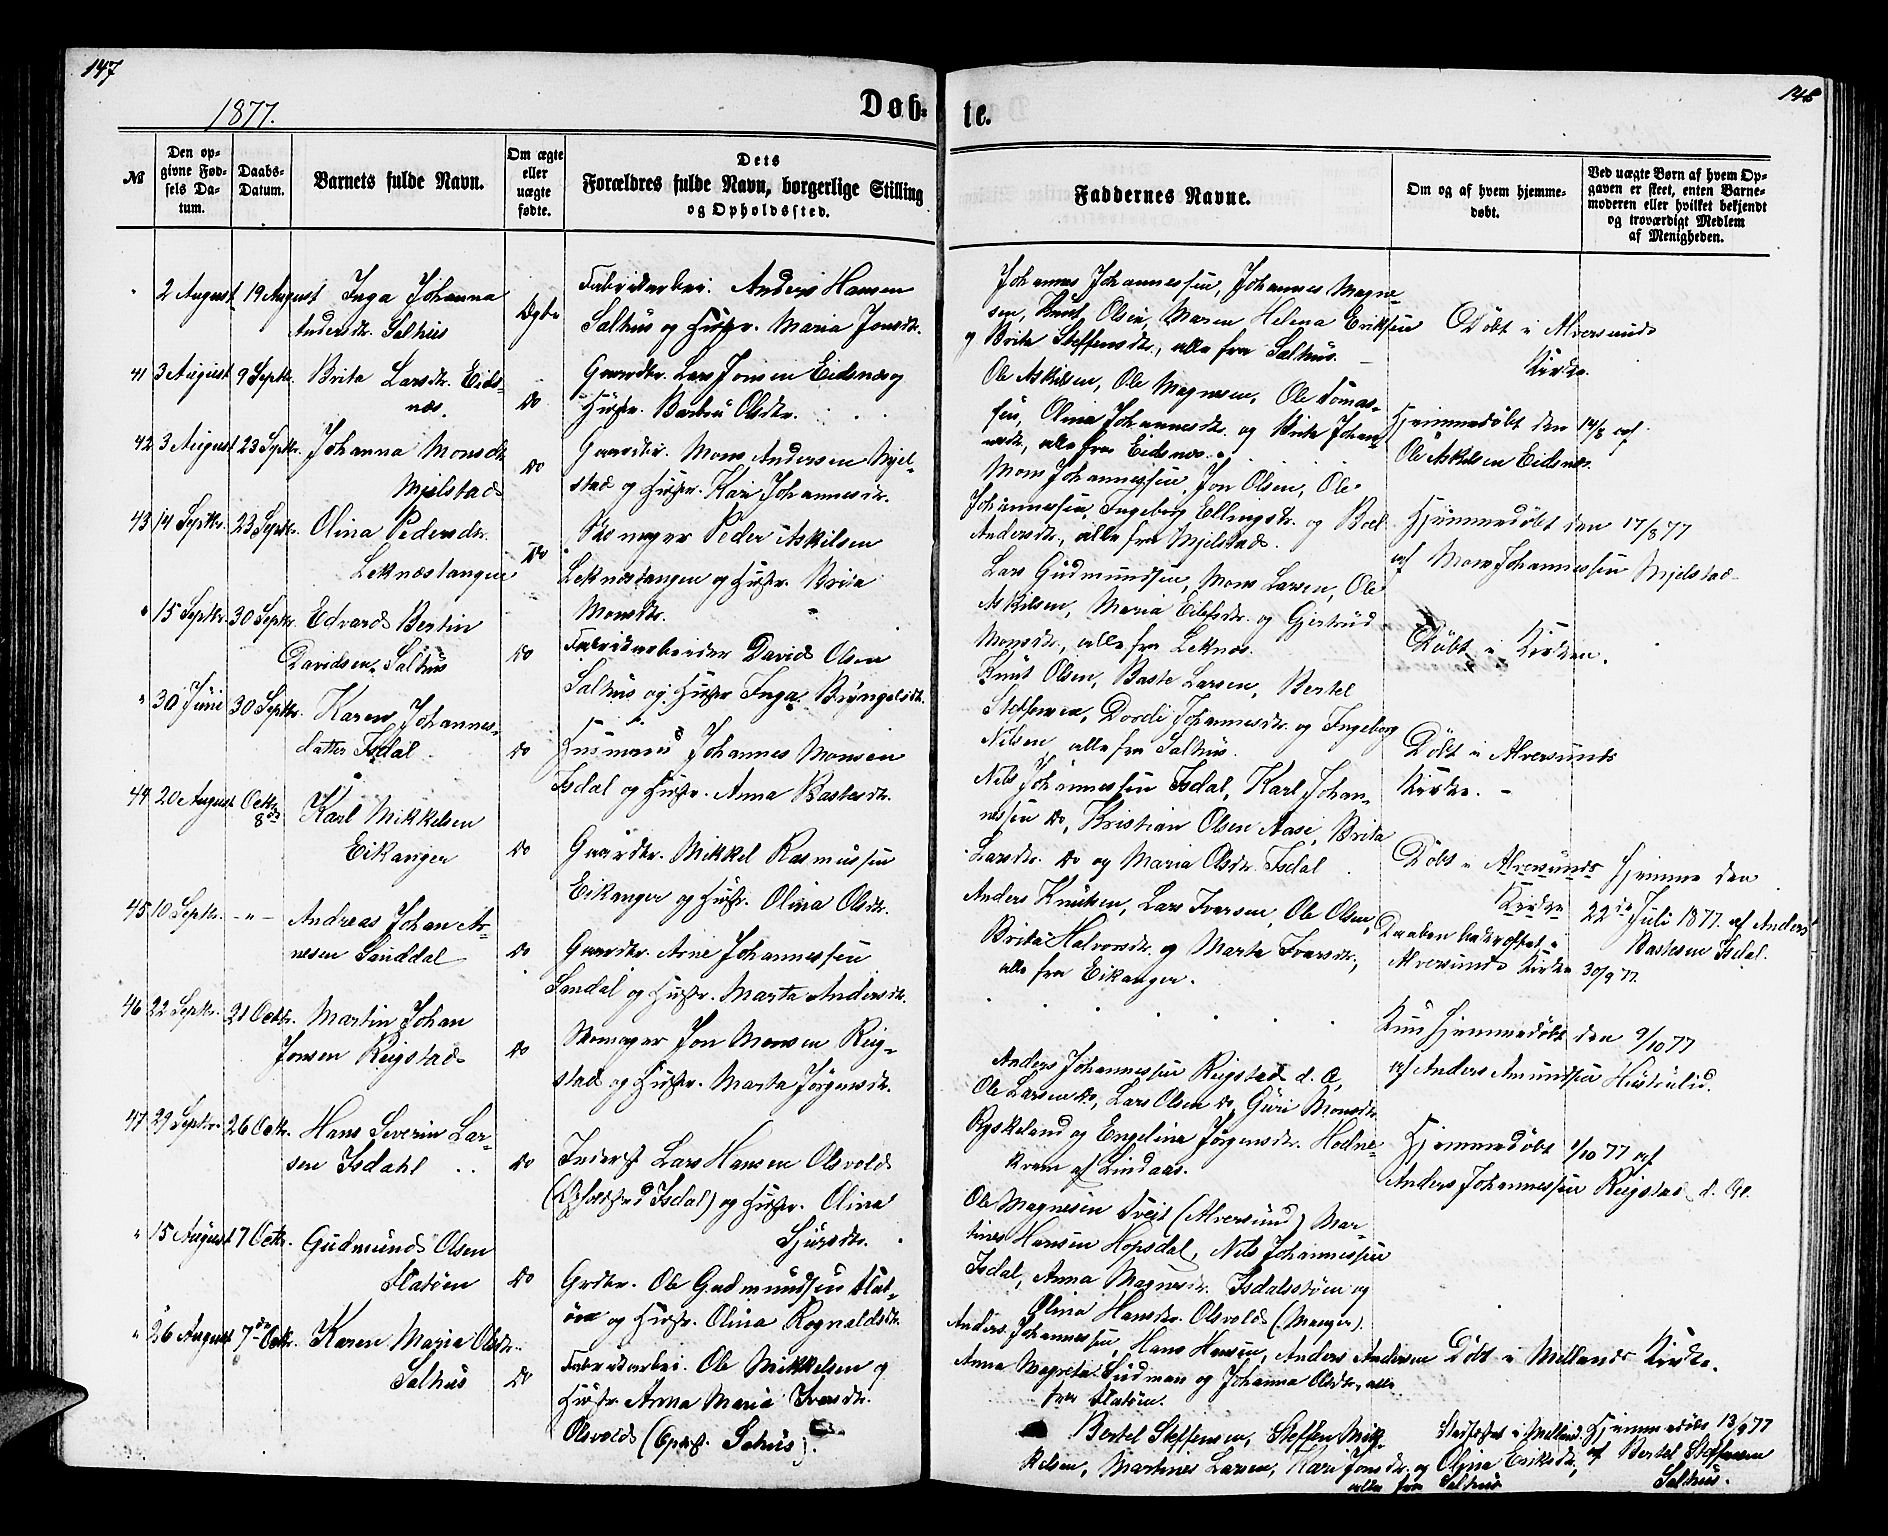 147
1877.
Døb-
№
Den op-
givne Fød-
sels Da-
tum.
Daabs-
Datum.
Barnets fulde Navn.
Om ægte
eller
uægte
fødte.
Dets
Forældres fulde Navn, borgerlige Stilling
og Opholdssted.
" 2 August 19 August Inga Johanna
Andersdtr. Salhus
Ægte
Fabrikarbei. Anders Hansen
Salhus og Hustr. Maria Jonsdtr.
41 3 August 9 Septbr. Brita Larsdtr. Eids-
næs.
Do
Gaardbr. Lars Jonsen Eidsnæs og
Hustr. Barbru Olsdtr.
42 3 August 23 Septbr. Johanna Monsdtr.
Mjelstad
Do
Gaardbr. Mons Andersen Mjel-
stad og Hustr. Kari Johannesdtr.
43 14 Septbr. 23 Septbr. Olina Pedersdtr.
Leknæstangen
Do
Skomager Peder Askilsen
Leknæstangen og Hustr. Brita
Monsdtr.
" 15 Septbr. 30 Septbr. Edvard Bertin
Davidsen Salhus
Do
Fabrikarbeider David Olsen
Salhus og Hustr. Inga Bryngelsdtr.
" 30 Juni 30 Septbr. Karen Johannes-
datter Isdal
Do
Husmand Johannes Monsen
Isdal og Hustr. Anna Bastesdtr.
44 20 August Octbr. 8de Karl Mikkelsen
Eikanger
Do
Gaardbr. Mikkel Rasmussen
Eikanger og Hustr. Olina Olsdtr.
45 10 Septbr. - " - Andreas Johan Ar-
nesen Sanddal
Do
Gaardbr. Arne Johannessen
Sandal og Hustr. Marta Andersdtr.
46 22 Septbr. 21 Octbr. Martin Johan
Jonsen Reigstad
Do
Skomager Jon Monsen Reig-
stad og Hustr. Marta Jørgensdtr.
47 29 Septbr. 26 Octbr. Hans Severin Lar-
sen Isdahl
Do
Inderst Lars Hansen Olsvold
Isdal) og Hustr. Olina
Sjursdtr.
" 15 August 7 Octbr. Gudmund Olsen
Flatøen
Do
Grdbr. Ole Gudmundsen Flat-
øen og Hustr. Olina Rognaldsdtr.
" 26 August 7de Octbr. Karen Maria Olsdtr.
Salhus
Do
Fabrikarbei. Ole Mikkelsen og
Hustr. Anna Maria Iversdtr.
Olsvold (Opst. Salhus).
148
te.
Faddernes Navne.
Om og af hvem hjemme-
døbt.
Ved uægte Børn af hvem Op-
gaven er skeet, enten Barne-
moderen eller hvilket bekjendt
og troværdigt Medlem
af Menigheden.
Johannes Johannessen, Johannes Magne-
sen, Knut Olsen, Maren Helena Eriksen
og Brita Steffensdtr., alle fra Salhus.
Døbt i Alversunds
Kirke.
Ole Askilsen, Ole Magnesen, Ole Tomas-
sen, Olina Johannesdtr. og Brita Johan-
nesdtr., alle fra Eidsnæs.
Hjemmedøbt den 14/8 af
Ole Askilsen Eidsnæs.
Mons Johannessen, Jon Olsen, Ole
Johannessen, Ingeborg Ellingsdtr. og Boel
Andersdtr., alle fra Mjelstad.
Hjemmedøbt den 17/8 77
af Mons Johannessen Mjelstad
Lars Gudmundsen, Mons Larsen, Ole
Askilsen, Maria Eilefsdtr. og Gjertrud
Monsdtr., alle fra Leknæs.
Døbt i Kirken.
Knut Olsen, Baste Larsen, Bertel
Steffensen, Dordi Johannesdtr. og Ingeborg
Nilsen, alle fra Salhus.
Døbt i Alversunds
Kirke.
Nils Johannessen Isdal, Karl Johan-
nessen Do, Kristian Olsen Aase, Brita
Larsdtr. Do og Maria Olsdtr. Isdal
Døbt i Alversunds
Kirke
Hjemme den
22de Juli 1877 af Anders
Bastesen Isdal.
Anders Knutsen, Lars Iversen, Ole Olsen,
Brita Halvorsdtr. og Marta Iversdtr.,
alle fra Eikanger.
Daaben bekræftet i
Alversunds Kirke 30/9 77.
Kun Hjemmedøbt den 9/10 77
af Anders Amundsen Hustrulid.
Anders Johannessen Reigstad d. Æ,
Ole Larsen Do, Lars Olsen Do, Guri Monsdtr.
Ryskeland og Engelina Jørgensdtr. Hodne-
kvam af Lindaas.
Hjemmedøbt 1/10 77 af
Anders Johannessen Reigstad d.
Ole Magnesen Tveit (Alversund) Mar-
tines Hansen Hopsdal, Nils Johannessen
Isdal, Anna Magnesdtr. Isdalsstøen og
Olina Hansdtr. Olsvold (Manger).
Anders Johannessen, Hans Hansen, Anders Andersen
Anna Magreta Gudman og Johanna Olsdtr., alle
fra Flatøen.
Døbt i Mellands Kirke.
Bertel Steffensen, Steffen Mik-
kelsen, Martines Larsen, Kari Jonsdtr. og Olina Eriksdtr.,
alle fra Salhus
Stadfæstet i Melland
Hjemmedøbt 13/9 77
af Bertel Steffensen
Salhus.